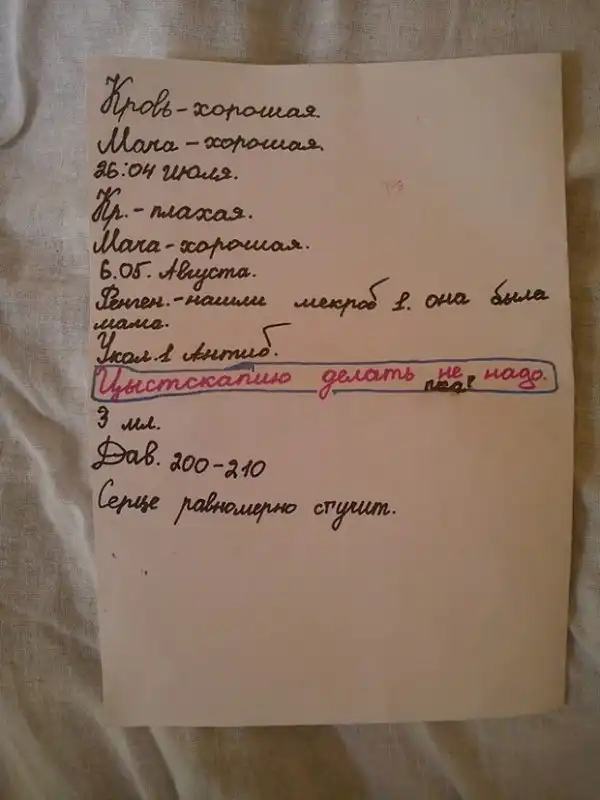 Кровь-хорошая.
Мача-хорошая.
26:04 июля.
Кр.-плахая.
Мача-хорошая.
6.05. Августа.
Ренген.-нашли мекроб 1. она была
мама.
Укол.1 Антиб.
Цыстскапию делать не надо.
пока!
3 мл.
Дав. 200-210
Серце равномерно стучит.